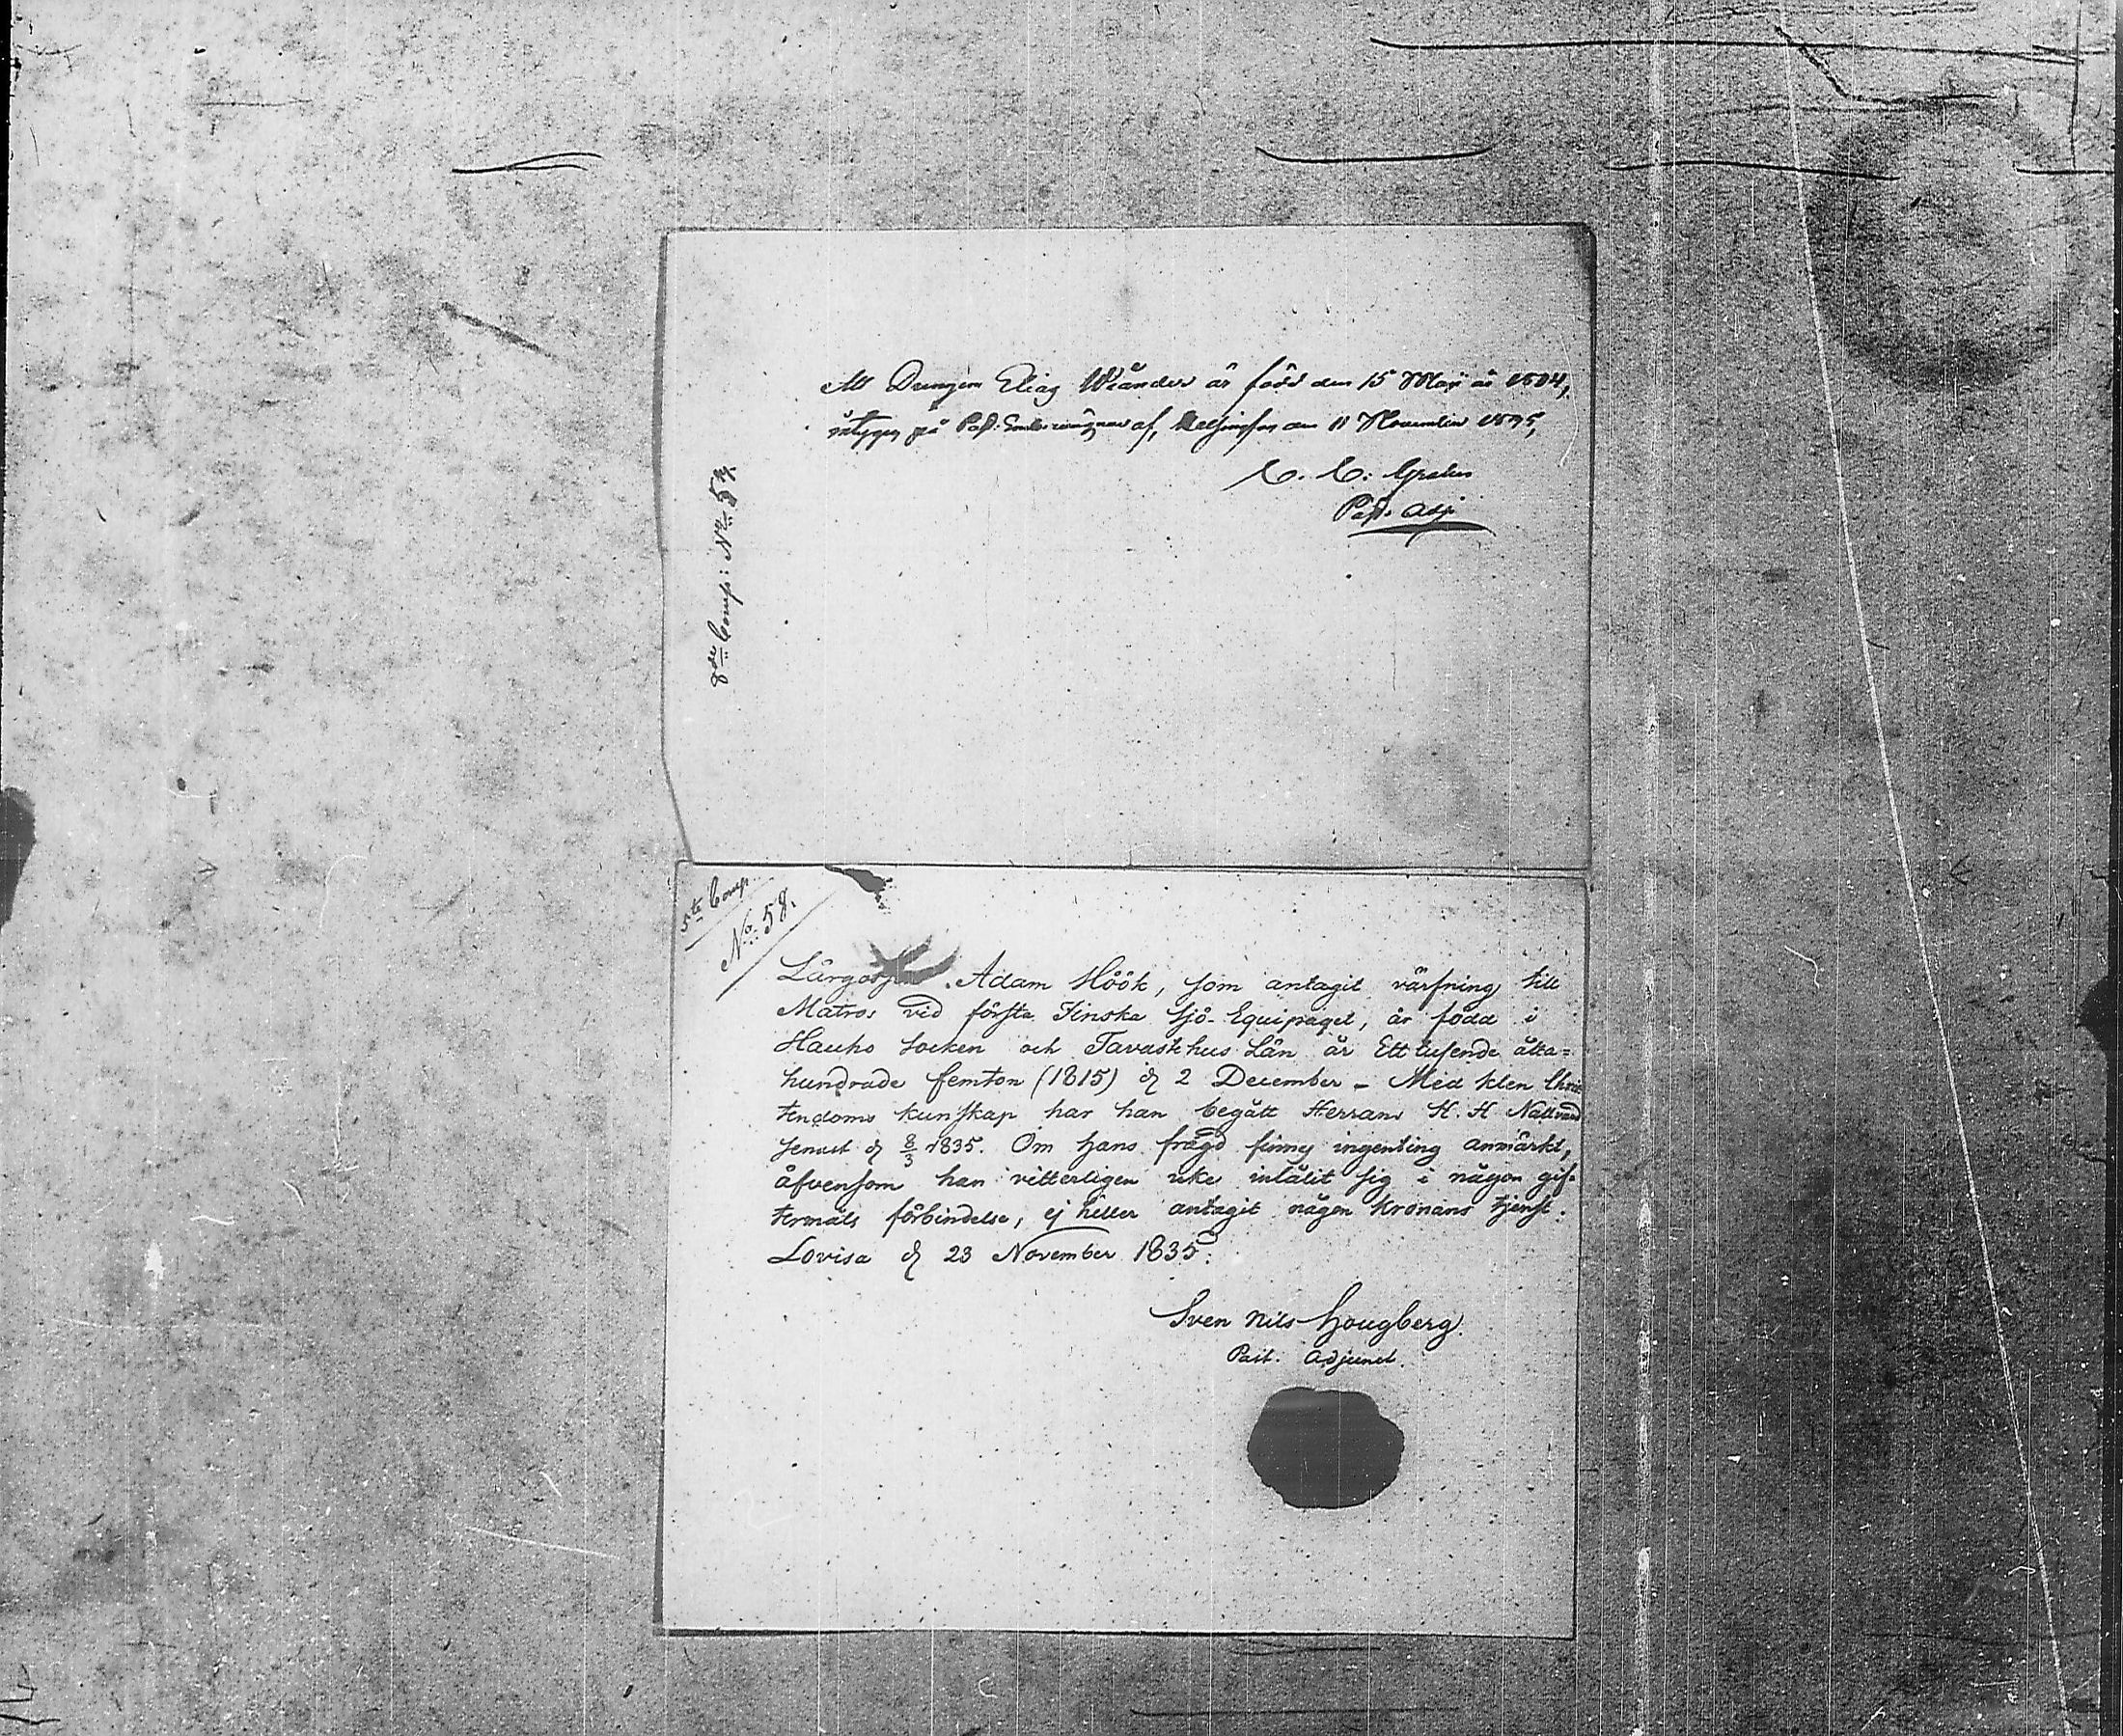 Att Drengen Elias Wiander är född den 15 Maji år 1804,
intygar på Past: Embetswägnar af, Helsingfors den 11 November 1835,
C. C.
Past. Adj.
8de Comp: No 54.
5te Comp
No 58.
Lärgossen Adam Höök, som antagit värfning till
Matros vid första Finska Sjö-Equipaget, är född i
Hauho Socken och Tavastehus Län år Ett tusende åtta=
hundrade femton (1815) d 2 December - Med klen Chris
tendoms kunskap har han begått Herrans H. H Nattvard
senast d 8/3 1835. Om hans frägd finnes ingenting anmärkt,
äfvensom han vitterligen icke inlåtit sig i någon gif-
termåls förbindelse, ej heller antagit någon Kronans tjenst.
Lovisa d 23 November 1835.
Sven Nils Hougberg.
Past. Adjunct.